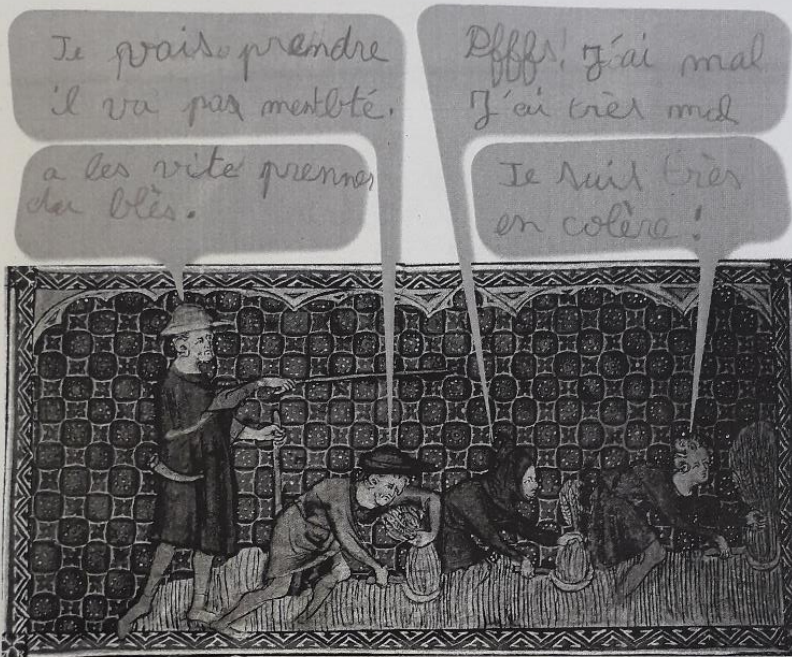 Je vais prendre
il va pas mentbté.
a les vite prennes
du blès.
Pfffs! J'ai mal
J'ai très mal
Je suis très
en colère!